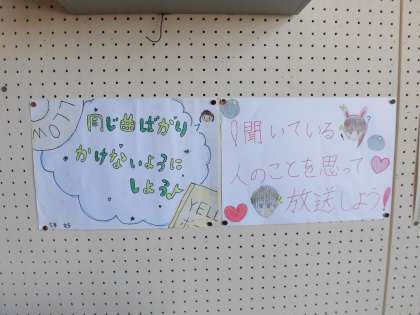 同じ曲ばかり
かけないように
しよう♪
YELL
聞いている
人のことを思って
放送しよう!